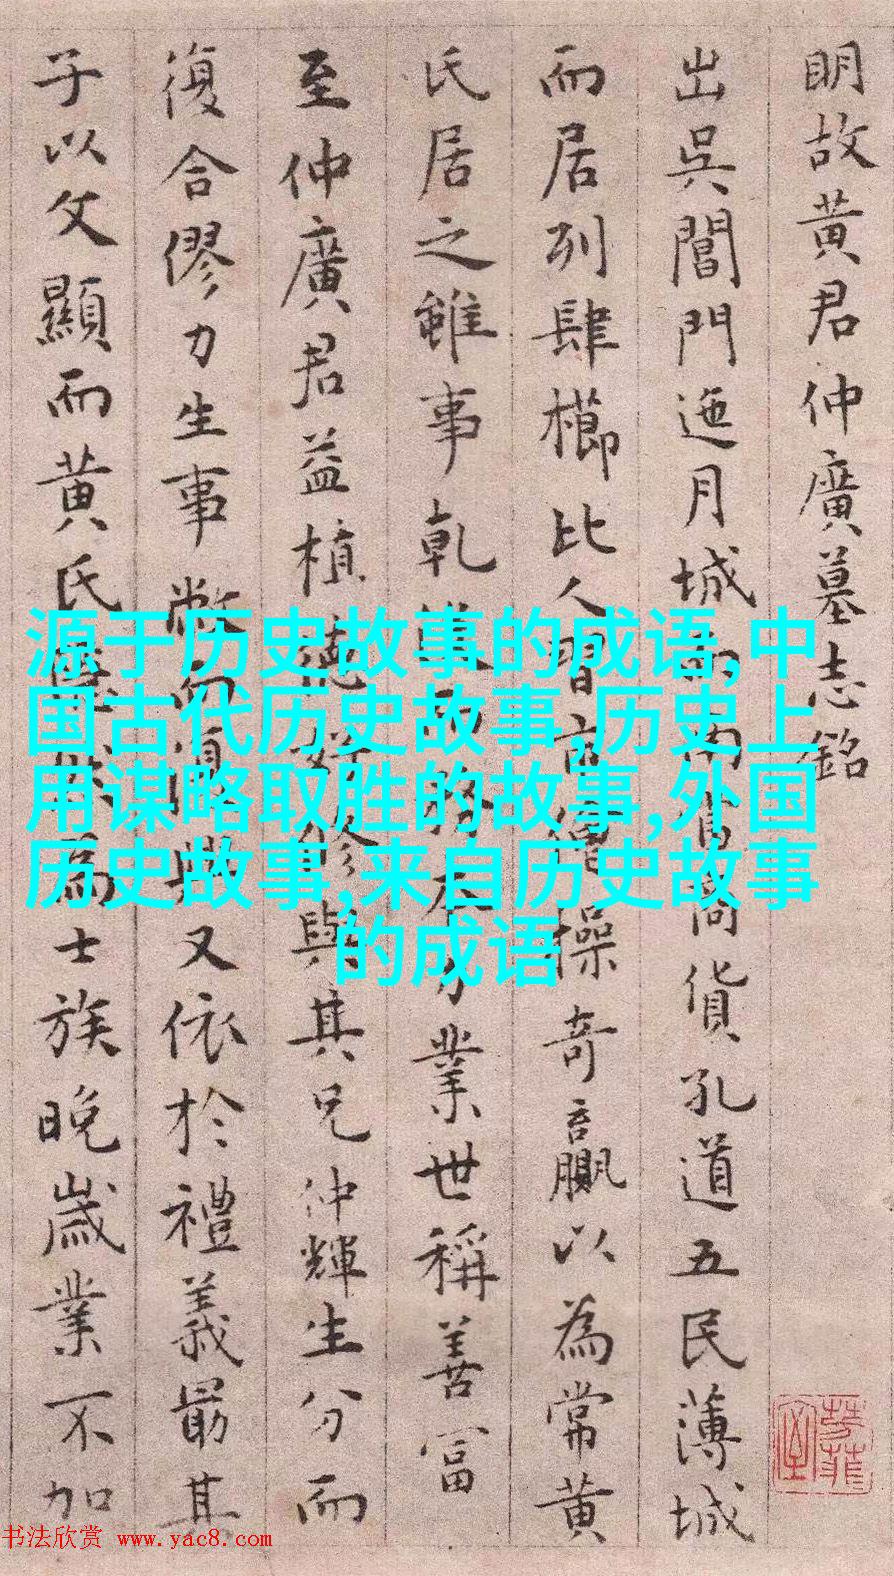 明故黄君仲廣墓志銘
出吳閶門迤月城而南皆商貨孔道五民薄城
而居列肆櫛比人習市儈操奇贏以為常黄
氏居之雖事乾務本力業世稱善富
至仲廣君益植德好修與其兄仲輝生分而
復合僇力生事又依於禮義最其
子以文顯而黄氏為士族晚歲業不加
源于历史故事的成语,中
国古代历史故事,历史上
用谋略取胜的故事,外国
历史故事,来自历史故事
的成语
书法欣赏 www.yac8.com